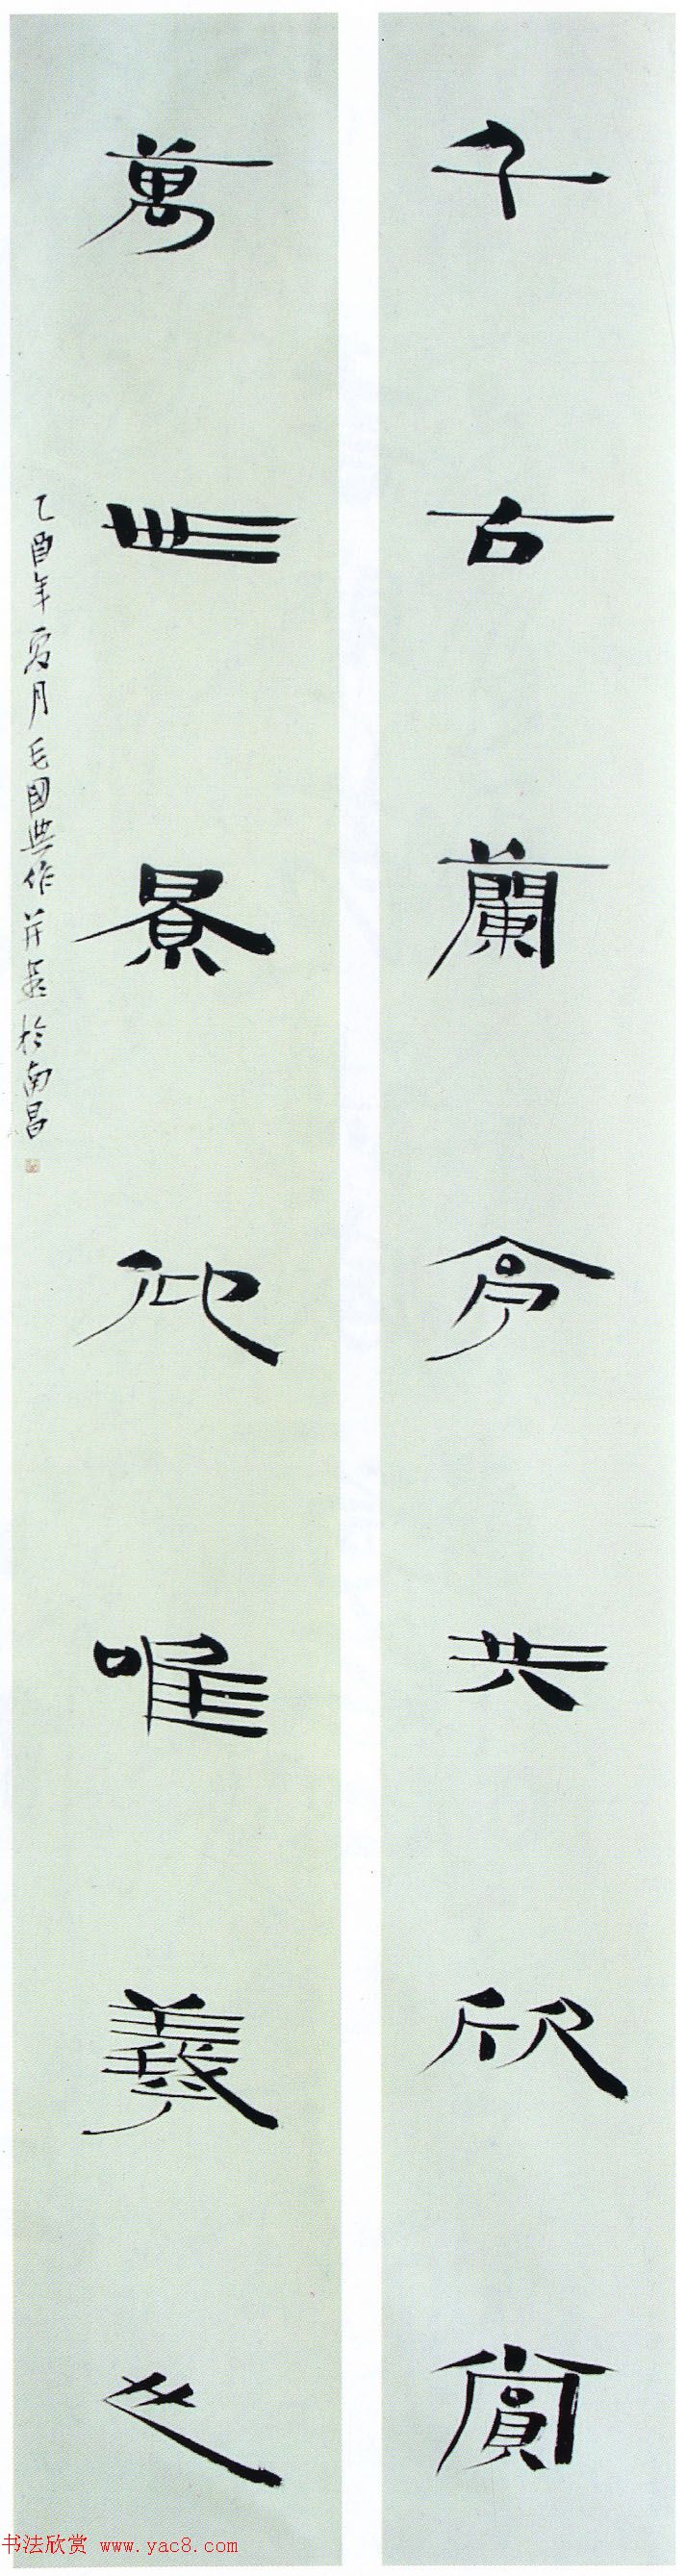 千古蘭亭共欣賞
萬世景仰唯羲之
乙酉年夏月毛國典作并書於南昌
书法欣赏 www.yac8.com